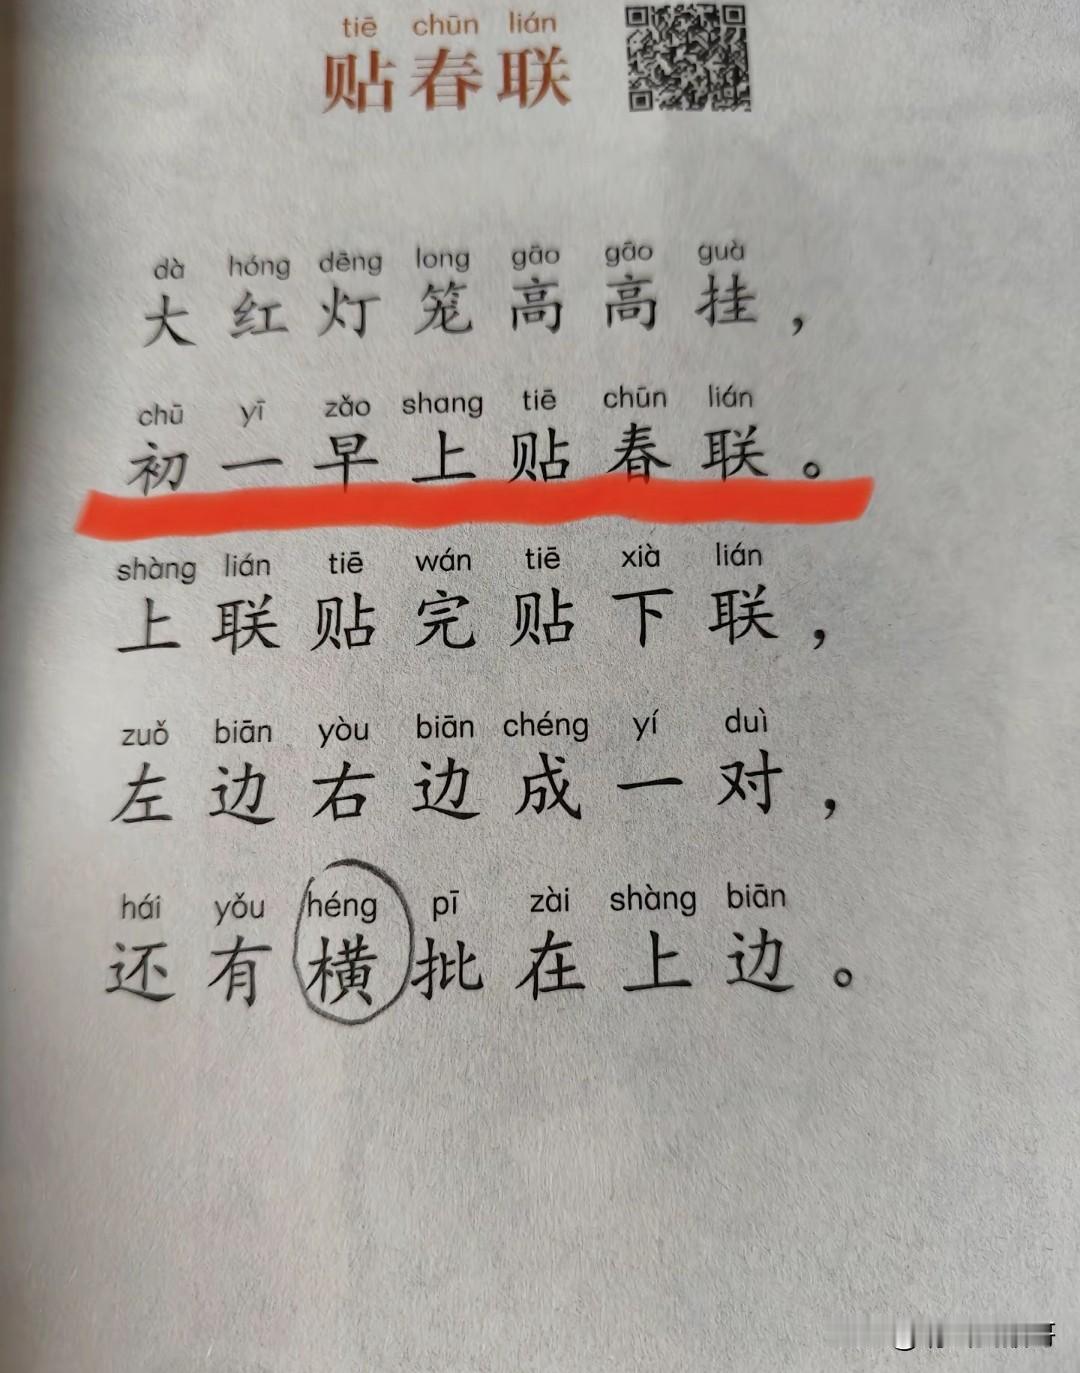 tiē chūn lián
贴春联
dà hóng dēng long gāo gāo guà
大红灯笼高高挂，
chū yī zǎo shang tiē chūn lián
初一早上贴春联。
shàng lián tiē wán tiē xià lián
上联贴完贴下联，
zuǒ biān yòu biān chéng yí duì
左边右边成一对，
hái yǒu héng pī zài shàng biān
还有横批在上边。